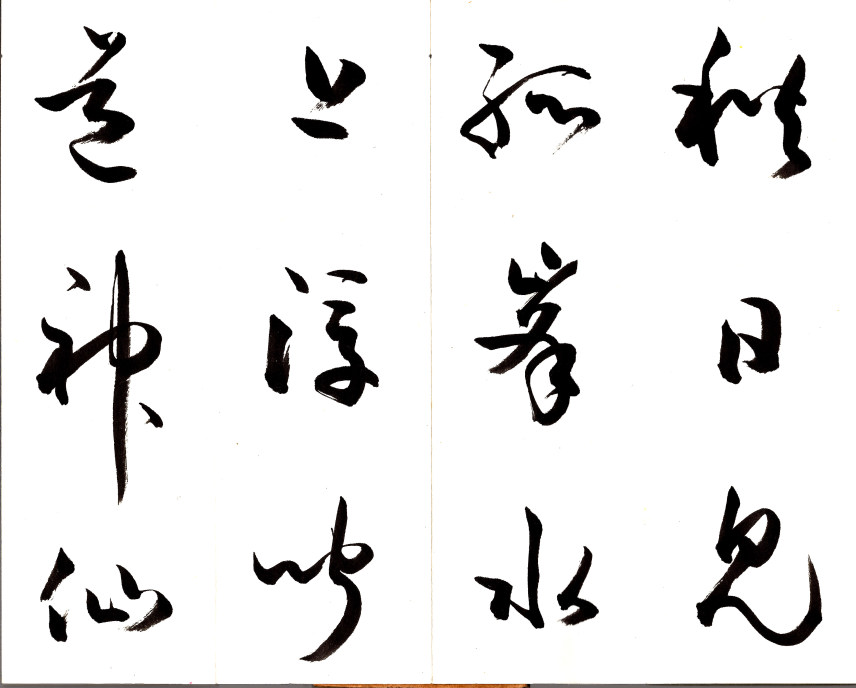 秋日見
孤峯水
上浮時
道神仙